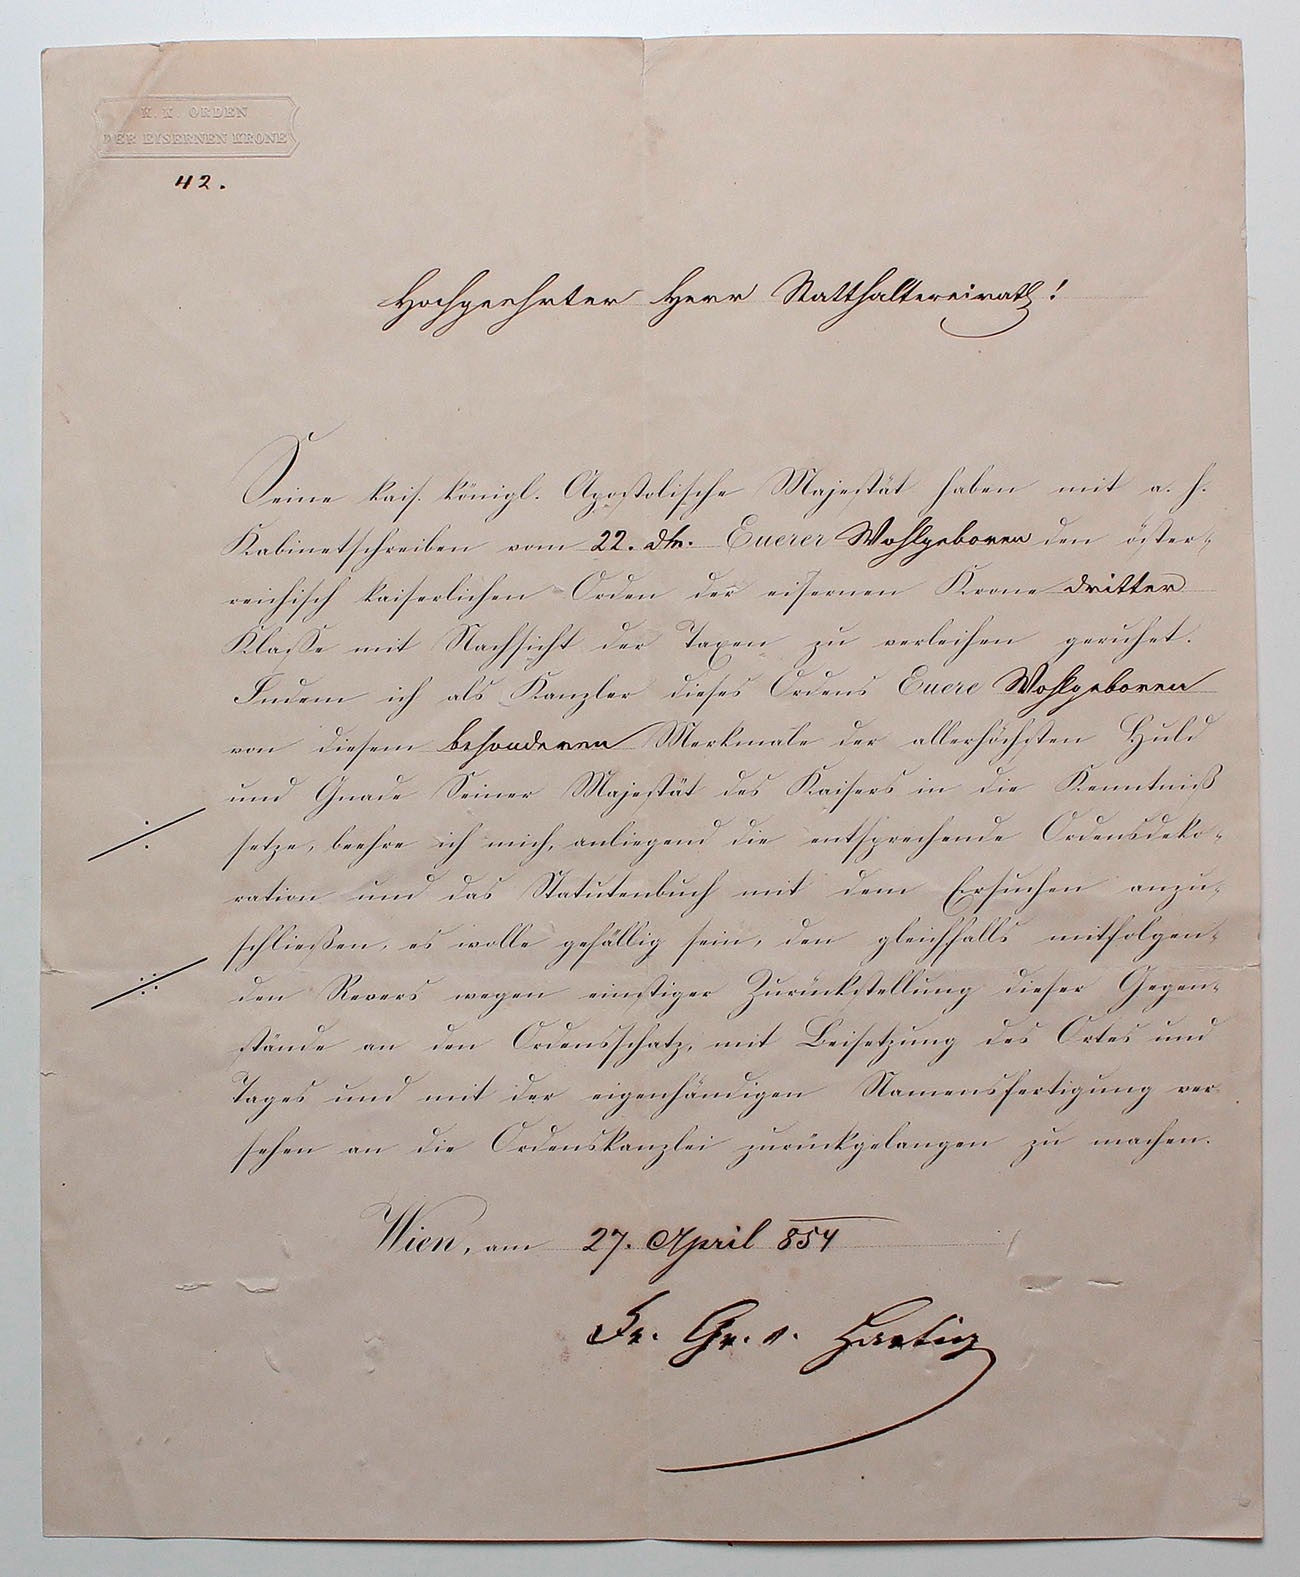 K. K. ORDEN
DER EISERNEN KRONE
42.
Hochgeehrter Herr Statthaltereirath!
Seine kais. königl. Apostolische Majestät haben mit a. h.
Kabinetschreiben vom 22. dM. Euerer Wohlgeboren den öster-
reichisch kaiserlichen Orden der eisernen Krone dritter
Klasse mit Nachsicht der Taxen zu verleihen geruhet.
Indem ich als Kanzler dieses Ordens Euere Wohlgeboren
von diesem besonderen Merkmale der allerhöchsten Huld
und Gnade Seiner Majestät des Kaisers in die Kenntniß
setze, beehre ich mich, anliegend die entsprechende Ordensdeko-
ration und das Statutenbuch mit dem Ersuchen anzu-
schließen, es wolle gefällig sein, den gleichfalls mitfolgen-
den Revers wegen einstiger Zurückstellung dieser Gegen-
stände an den Ordensschatz, mit Beisetzung des Ortes und
Tages und mit der eigenhändigen Namensfertigung ver-
sehen an die Ordenskanzlei zurückgelangen zu machen.
Wien, am 27. April 854
Fr. Gr. v. Hartig